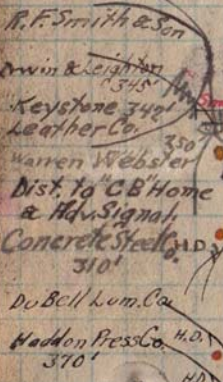 R.F. Smith & Son
Irwin & Leighton
345'
Keystone 342'
Leather Co.
350'
Warren Webster
Dist. to "C.B" Home
& Adv. Signal.
Concrete Steel Co.
H.D.
310'
DuBell Lum. Co.
Haddon Press Co.
H.D.
370'
H.D.